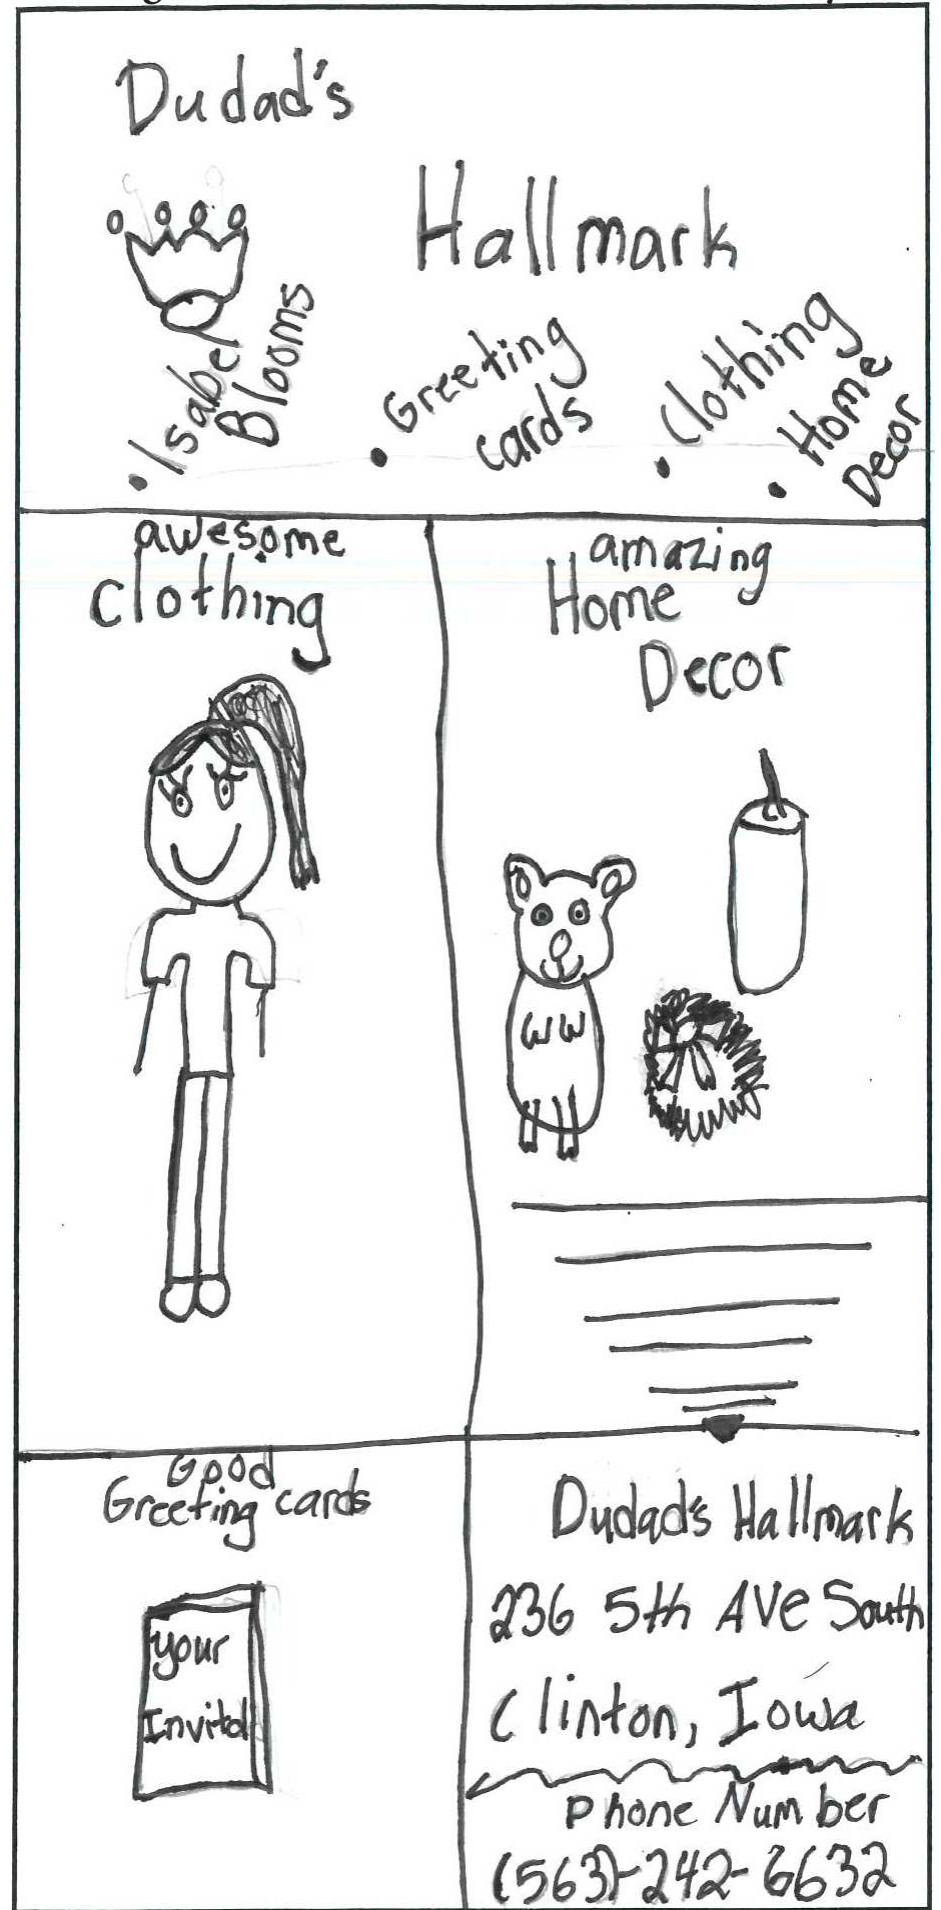 Dudad's
Hallmark
• Isabel
Blooms
• Greeting
cards
• Clothing
• Home
Decor
awesome
Clothing
amazing
Home
Decor
Good
Greeting cards
your
Invited
Dudad's Hallmark
236 5th AVe South
Clinton, Iowa
Phone Number
(563)-242-6632